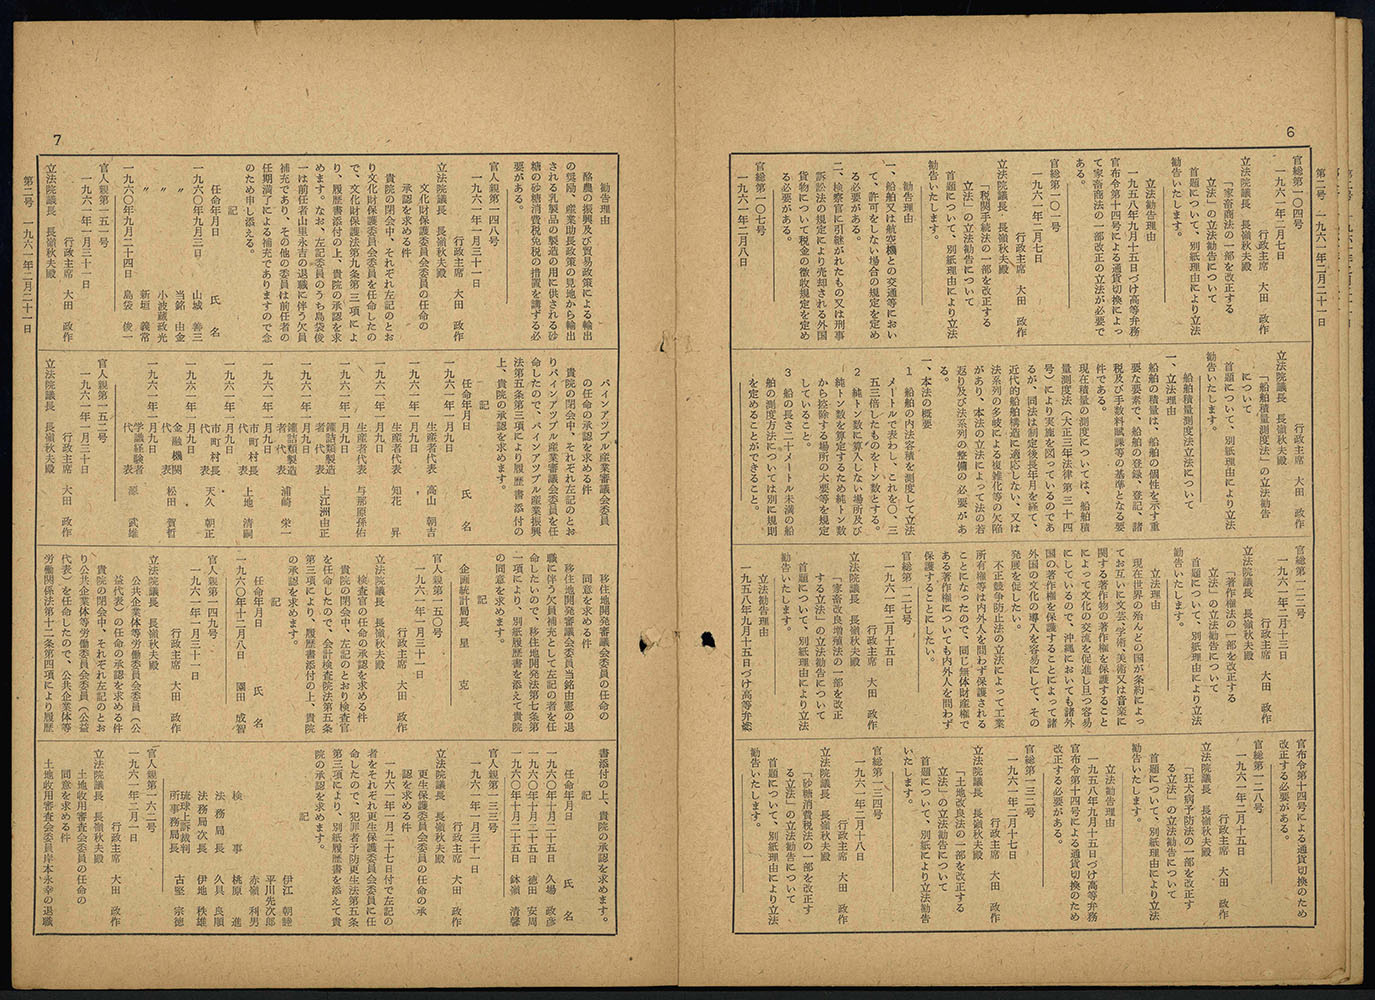 6
第二号　一九六一年二月二十一日
官総第一〇四号
一九六一年二月七日
行政主席　大田　政作
立法院議長　長嶺秋夫殿
「家畜商法の一部を改正する
立法」の立法勧告について
首題について、別紙理由により立法
勧告いたします。
立法勧告理由
一九五八年九月十五日づけ高等弁務
官布令第十四号による通貨切換によっ
て家畜商法の一部改正の立法が必要で
ある。
官総第一〇一号
一九六一年二月七日
行政主席　大田　政作
立法院議長　長嶺秋夫殿
「税関手続法の一部を改正する
立法」の立法勧告について
首題について、別紙理由により立法
勧告いたします。
勧告理由
一、船舶又は航空機との交通等におい
て、許可をしない場合の規定を定め
る必要がある。
二、検察官に引継がれたもの又は刑事
訴訟法の規定により売却される外国
貨物について税金の徴収規定を定め
る必要がある。
官総第一〇七号
一九六一年二月八日
行政主席　大田　政作
立法院議長　長嶺秋夫殿
「船舶積量測度法」の立法勧告
について
首題について、別紙理由により立法
勧告いたします。
船舶積量測度法立法について
一、立法理由
船舶の積量は、船舶の個性を示す重
要な要素で、船舶の登録、登記、諸
税及び手数料賦課等の基準となる要
件である。
現在積量の測度については、船舶積
量測度法（大正三年法律第三十四
号）により実施を図っているのであ
るが、同法は制定後長年月を経て、
近代的船舶構造に適応しない、又は
法系列の多岐による複雑化等の欠陥
があり、本法の立法によって法の若
返り及び法系列の整備の必要があ
る。
一、本法の概要
1　船舶の内法容積を測度して立法
メートルで表わし、これを〇、三
五三倍したものをトン数とする。
2　純トン数に算入しない場所及び
純トン数を算定するため純トン数
から控除する場所の大要等を規定
していること。
3　船の長さ二十メートル未満の船
舶の測度方法については別に規則
を定めることができること。
官総第一二二号
一九六一年二月十三日
行政主席　大田　政作
立法院議長　長嶺秋夫殿
「著作権法の一部を改正する
立法」の立法勧告について
首題について、別紙理由により立法
勧告いたします。
立法理由
現在世界の殆んどの国が条約によっ
てお互いに文芸、学術、美術又は音楽に
関する著作物の著作権を保護すること
によって文化の交流を促進し且つ容易
にしているので、沖縄においても諸外
国の著作権を保護することによって諸
外国の文化の導入を容易にして、その
発展を促したい。
不正競争防止法の立法によって工業
所有権等は内外人を問わず保護される
ことになったので、同じ無体財産権で
ある著作権についても内外人を問わず
保護することにしたい。
官総第一二七号
一九六一年二月十五日
行政主席　大田　政作
立法院議長　長嶺秋夫殿
「家畜改良増殖法の一部を改正
する立法」の立法勧告について
首題について、別紙理由により立法
勧告いたします。
立法勧告理由
一九五八年九月十五日づけ高等弁務
官布令第十四号による通貨切換のため
改正する必要がある。
官総第一二八号
一九六一年二月十五日
行政主席　大田　政作
立法院議長　長嶺秋夫殿
「狂犬病予防法の一部を改正す
る立法」の立法勧告について
首題について、別紙理由により立法
勧告いたします。
立法勧告理由
一九五八年九月十五日づけ高等弁務
官布令第十四号による通貨切換のため
改正する必要がある。
官総第一三二号
一九六一年二月十七日
行政主席　大田　政作
立法院議長　長嶺秋夫殿
「土地改良法の一部を改正する
立法」の立法勧告について
首題について、別紙により立法勧告
いたします。
官総第一三四号
一九六一年二月十八日
行政主席　大田　政作
立法院議長　長嶺秋夫殿
「砂糖消費税法の一部を改正す
る立法」の立法勧告について
首題について、別紙理由により立法
勧告いたします。
7
勧告理由
酪農の振興及び貿易政策による輸出
の奨励、産業助長政策の見地から輸出
される乳製品の製造の用に供される砂
糖の砂糖消費税免税の措置を講ずる必
要がある。
官人親第一四八号
一九六一年一月三十一日
行政主席　大田　政作
立法院議長　長嶺秋夫殿
文化財保護委員会委員の任命の
承認を求める件
貴院の閉会中、それぞれ左記のとお
り文化財保護委員会委員を任命したの
で、文化財保護法第九条第三項によ
り、履歴書添付の上、貴院の承認を求
めます。なお、左記委員のうち島袋俊
一は前任者山里永吉の退職に伴う欠員
補充であり、その他の委員は前任者の
任期満了による補充でありますので念
のため申し添える。
記
任命年月日　氏　名
一九六〇年九月三日　山城　善三
〃　当銘　由金
〃　小波蔵政光
〃　新垣　義常
一九六〇年九月二十四日　島袋　俊一
官人親第一五一号
一九六一年一月三十一日
行政主席　大田　政作
立法院議長　長嶺秋夫殿
パインアップル産業審議会委員
の任命の承認を求める件
貴院の閉会中、それぞれ左記のとお
りパインアップル産業審議会委員を任
命したので、パインアップル産業振興
法第五条第三項により履歴書添付の
上、貴院の承認を求めます。
記
任命年月日　氏　名
一九六一年一月九日　生産者代表　高山　朝吉
一九六一年一月九日　生産者代表　知花　昇
一九六一年一月九日　生産者代表　与那原孫佑
一九六一年一月九日　罐詰類製造者代表　上江洲由正
一九六一年一月九日　罐詰類製造者代表　浦崎　栄一
一九六一年一月九日　市町村長代表　上地　清嗣
一九六一年一月九日　市町村長代表　天久　朝正
一九六一年一月九日　金融機関代表　松田　賀哲
一九六一年一月九日　学識経験者代表　源　武雄
官人親第一五二号
一九六一年一月三十日
行政主席　大田　政作
立法院議長　長嶺秋夫殿
移住地開発審議会委員の任命の
同意を求める件
移住地開発審議会委員当銘由憲の退
職に伴う欠員補充として左記の者を任
命したいので、移住地開発法第七条第
一項により、別紙履歴書を添えて貴院
の同意を求めます。
記
企画統計局長　星　克
官人親第一五〇号
一九六一年一月三十一日
行政主席　大田　政作
立法院議長　長嶺秋夫殿
検査官の任命の承認を求める件
貴院の閉会中、左記のとおり検査官
を任命したので、会計検査院法第五条
第三項により、履歴書添付の上、貴院
の承認を求めます。
記
任命年月日　氏　名
一九六〇年十二月八日　園田　成智
官人親第一四九号
一九六一年一月三十一日
行政主席　大田　政作
立法院議長　長嶺秋夫殿
公共企業体等労働委員会委員（公
益代表）の任命の承認を求める件
貴院の閉会中、それぞれ左記のとお
り公共企業体等労働委員会委員（公益
代表）を任命したので、公共企業体等
労働関係法第十二条第四項により履歴
書添付の上、貴院の承認を求めます。
記
任命年月日　氏　名
一九六〇年十月二十五日　久場　政彦
一九六〇年十月二十五日　徳田　安周
一九六〇年十月二十五日　鉢嶺　清馨
官人親第一三三号
一九六一年一月三十一日
行政主席　大田　政作
立法院議長　長嶺秋夫殿
更生保護委員会委員の任命の承
認を求める件
一九六一年一月二十七日付で左記の
者をそれぞれ更生保護委員会委員に任
命したので、犯罪者予防更生法第五条
第三項により、別紙履歴書を添えて貴
院の承認を求めます。
記
伊江　朝睦
平川先次郎
赤嶺　利男
検事　桃原　進
法務局長　久貝　良順
法務局次長　伊地　秩雄
琉球上訴裁判所事務局長　古堅　宗徳
官人親第一六二号
一九六一年二月一日
行政主席　大田　政作
立法院議長　長嶺秋夫殿
土地収用審査会委員の任命の
同意を求める件
土地収用審査会委員岸本永幸の退職
第二号　一九六一年二月二十一日